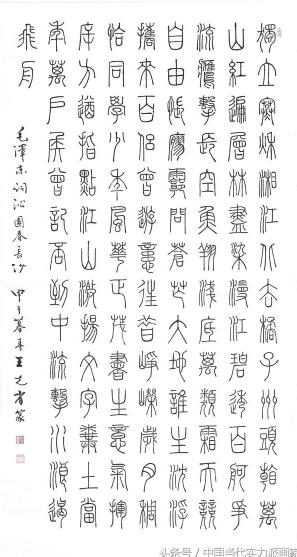 獨立寒秋湘江北去橘子州頭看萬
山紅遍層林盡染漫江碧透百舸爭
流鷹擊長空魚翔淺底萬類霜天競
自由悵寥廓問蒼茫大地誰主沉浮
攜來百侶曾遊憶往昔崢嶸歲月稠
恰同學少年風華正茂書生意氣揮
斥方遒指點江山激揚文字糞土當
年萬戶侯曾記否到中流擊水浪遏
飛舟
毛澤東詞沁園春長沙 甲午 王 省篆
头条号 / 中国当代实力派画家